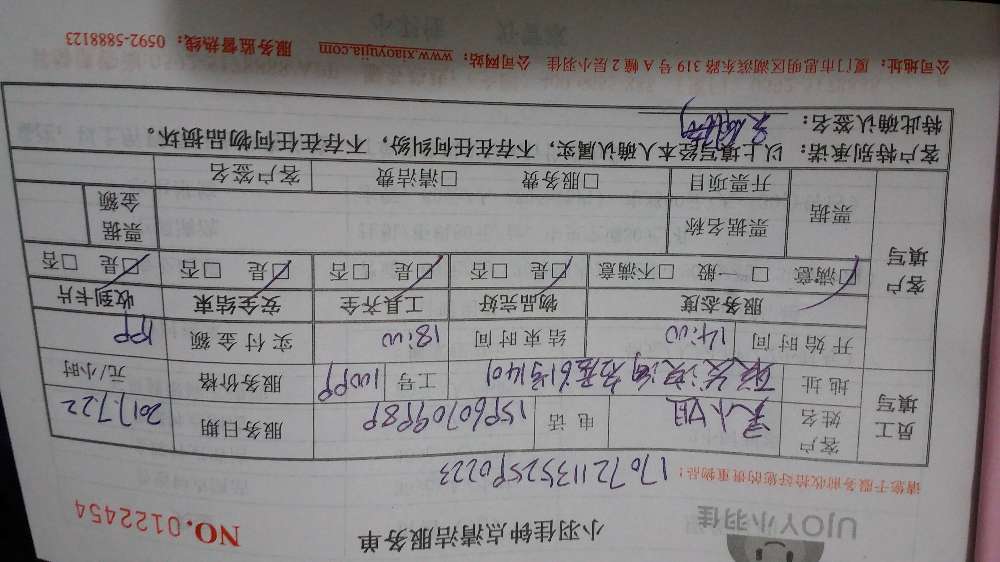 UJOY小羽佳
小羽佳钟点清洁服务单
NO.0122454
请您于服务前收拾好您的贵重物品！
1707211352590223
员工填写
客户姓名
吴小姐
电话
15960709989
服务日期
2017.7.22
地址
61号1401
工号
10099
服务价格
元/小时
开始时间
14:00
结束时间
18:00
实付金额
客户填写
服务态度
物品完好
工具齐全
安全结束
收到卡片
□满意 □一般 □不满意
□是 □否
□是 □否
□是 □否
□是 □否
票据
票据名称
票据金额
开票项目
□服务费 □清洁费
客户签名
客户特别承诺：以上填写经本人确认属实，不存在任何纠纷，不存在任何物品损坏。
特此确认签名：
公司地址：厦门市思明区湖滨东路 319 号 A 幢 2 层小羽佳 公司网站：www.xiaoyujia.com 服务监督热线：0592-5888123